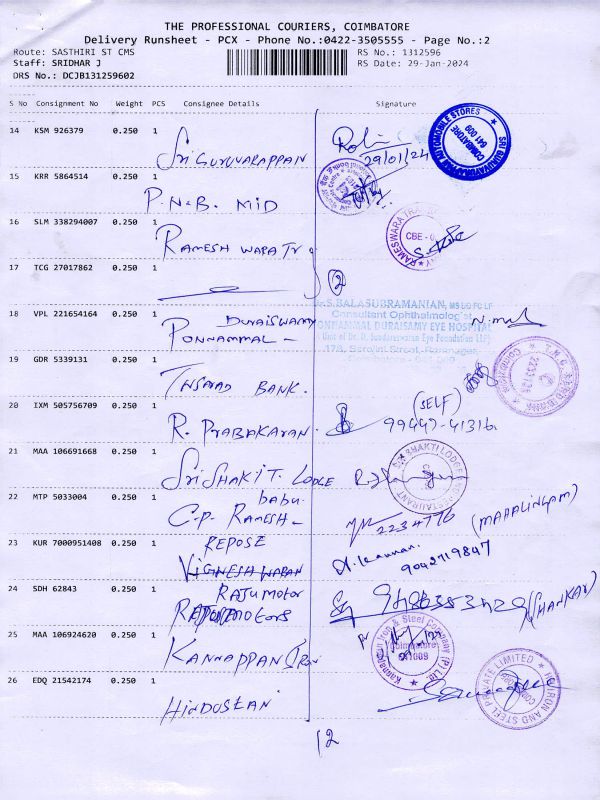 THE PROFESSIONAL COURIERS, COIMBATORE
Delivery Runsheet - PCX - Phone No.:0422-3505555 - Page No.:2
Route: SASTHIRI ST CMS
RS No.: 1312596
Staff: SRIDHAR J
RS Date: 29-Jan-2024
DRS No.: DCJB131259602
S No Consignment No Weight PCS Consignee Details Signature
14 KSM 926379 0.250 1
SRI GURUVARAPPAN
29/01/24
COIMBATORE
641 009
15 KRR 5864514 0.250 1
P.N.B. MID
16 SLM 338294007 0.250 1
RAMESH WARA Tr
CBE -
17 TCG 27017862 0.250 1
2
18 VPL 221654164 0.250 1
DURAISWAMY
PONNAMMAL -
Dr.S.BALASUBRAMANIAN, MS DO FC LF
Consultant Ophthalmologist
PONFAMMAL DURAISAMY EYE HOSPITAL
19 GDR 5339131 0.250 1
BANK.
20 IXM 505756709 0.250 1
R. PRABAKARAN.
(SELF)
99447-41316
21 MAA 106691668 0.250 1
SRI SHAKTI T. LODGE
SRI SHAKTI LODGE
RESTAURANT
22 MTP 5033004 0.250 1
babu
C.P. RAMESH -
2234776 (MAHALINGAM)
23 KUR 7000951408 0.250 1
REPOSE
VIGNESH WARAN
9042719847
24 SDH 62843 0.250 1
RAJU MOTOR
(SHANKAR)
25 MAA 106924620 0.250 1
KANNAPPAN IRON
Kannappan Iron & Steel Company (P) Ltd.
641009
26 EDQ 21542174 0.250 1
HINDUSTAN
IRON AND STEEL PRIVATE LIMITED
12